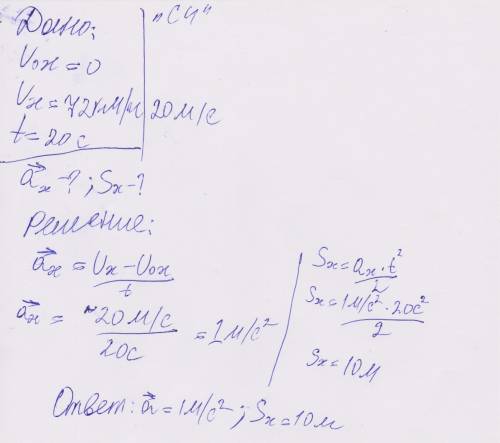 Дано: "СИ"
V₀ₓ = 0
Vₓ = 72 км/ч 20 м/с
t = 20 c
a⃗ₓ - ? ; Sₓ - ?
Решение:
a⃗ₓ = (Vₓ - V₀ₓ)/t
a⃗ₓ = (20 м/с)/(20c) = 1 м/с²
Sₓ = (aₓ · t²)/2
Sₓ = (1 м/с² · 20c²)/2
Sₓ = 10 м
Ответ: a⃗ = 1 м/с² ; Sₓ = 10 м